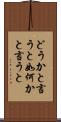 どうかと言
うと如何か
と言うと